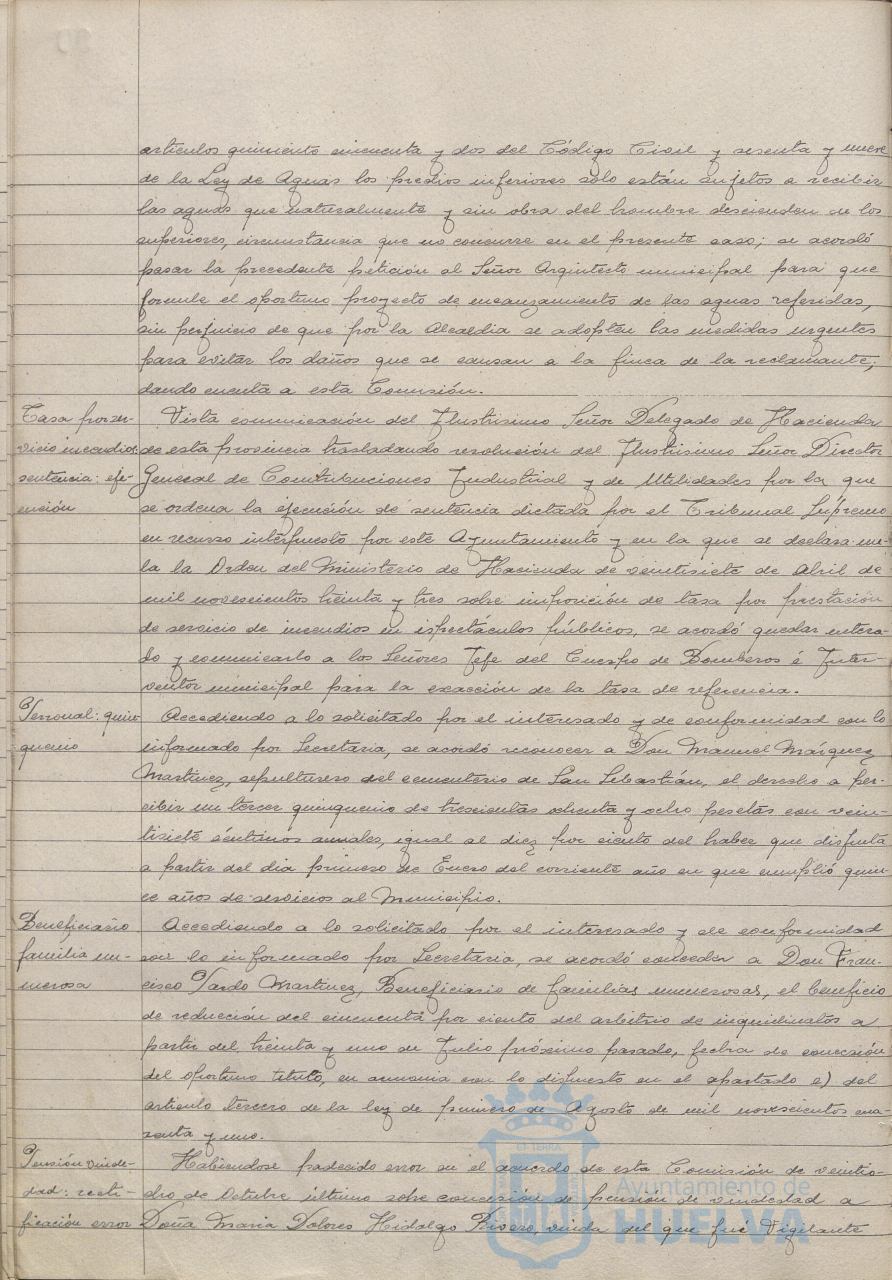 artículos quiniento cincuenta y dos del Código Civil y sesenta y nueve
de la Ley de Aguas los predios inferiores solo están sujetos a recibir
las aguas que naturalmente y sin obra del hombre descienden de los
superiores, circunstancia que no concurre en el presente caso; se acordó
pasar la precedente petición al Señor Arquitecto municipal para que
formule el oportuno proyecto de encauzamiento de las aguas referidas,
sin perjuicio de que por la Alcaldia se adopten las medidas urgentes
para evitar los daños que se causan a la finca de la reclamante,
dando cuenta a esta Comisión.
Tasa por ser-
vicio incendios:
sentencia: eje-
cución
Vista comunicación del Ilustrisimo Señor Delegado de Hacienda
de esta provincia trasladando resolución del Ilustrisimo Señor Director
General de Contribuciones Industrial y de Utilidades por la que
se ordena la ejecución de sentencia dictada por el Tribunal Supremo
en recurso interpuesto por este Ayuntamiento y en la que se declara nu-
la la Orden del Ministerio de Hacienda de veintisiete de Abril de
mil novescientos treinta y tres sobre imposición de tasa por prestación
de servicio de incendios en espectáculos públicos, se acordó quedar entera-
do y comunicarlo a los Señores Jefe del Cuerpo de Bomberos é Inter-
ventor municipal para la exacción de la tasa de referencia.
Personal: quin-
quenio
Accediendo a lo solicitado por el interesado y de conformidad con lo
informado por Secretaria, se acordó reconocer a Don Manuel Máiquez
Martinez, sepulturero del cementerio de San Sebastián, el derecho a per-
cibir un tercer quinquenio de trescientas ochenta y ocho pesetas con vein-
tisiete céntimos anuales, igual al diez por ciento del haber que disfruta
a partir del dia primero de Enero del corriente año en que cumplió quin-
ce años de servicios al Municipio.
Beneficiario
familia nu-
merosa
Accediendo a lo solicitado por el interesado y de conformidad
con lo informado por Secretaria, se acordó conceder a Don Fran-
cisco Pardo Martinez, Beneficiario de familias numerosas, el beneficio
de reducción del cincuenta por ciento del arbitrio de inquilinatos a
partir del treinta y uno de Julio próximo pasado, fecha de concesión
del oportuno titulo, en armonia con lo dispuesto en el apartado e) del
articulo tercero de la ley de primero de Agosto de mil novescientos cua-
renta y uno.
Pensión viude-
dad: recti-
ficación error
Habiendose padecido error en el acuerdo de esta Comisión de veintio-
cho de Octubre último sobre concesión de pensión de viudedad a
Doña Maria Dolores Hidalgo Rivero, viuda del que fué Vigilante
Ayuntamiento de
HUELVA